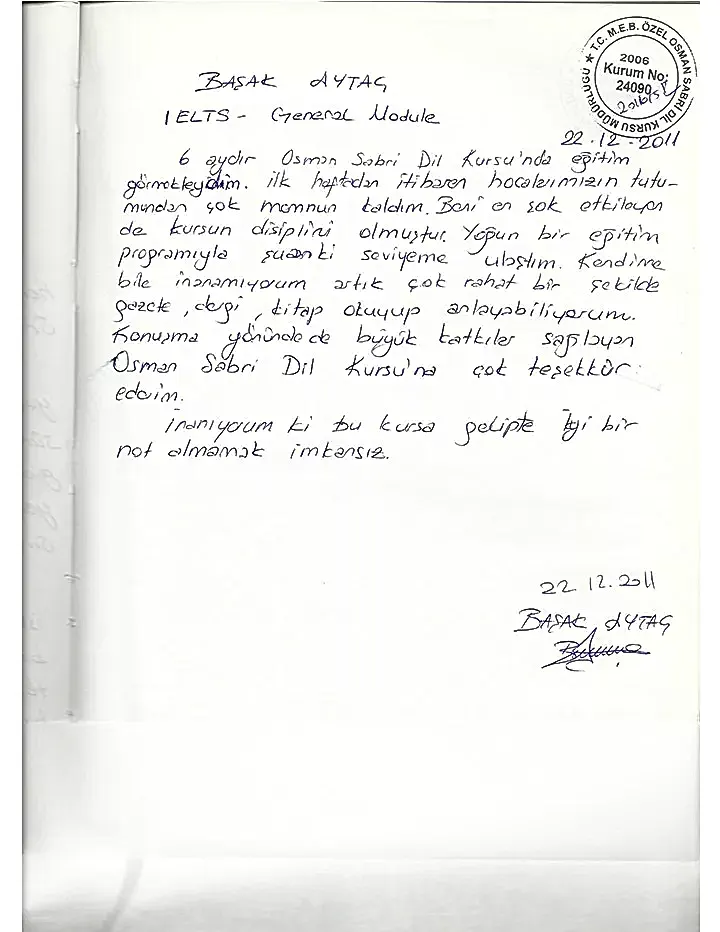 ★ T.C. M.E.B. ÖZEL OSMAN SABRİ DİL KURSU MÜDÜRLÜĞÜ
2006
Kurum No:
24090
BAŞAK AYTAÇ
IELTS - General Module
22.12.2011
6 aydır Osman Sabri Dil Kursu'nda eğitim
görmekteyidim. ilk haftadan itibaren hocalarımızın tutu-
mundan çok memnun kaldım. Beni en çok etkileyen
de kursun disiplini olmuştur. Yoğun bir eğitim
programıyla şuanki seviyeme ulaştım. Kendime
bile inanamıyorum artık çok rahat bir şekilde
gazete, dergi, kitap okuyup anlayabiliyorum.
Konuşma yönünde de büyük katkılar sağlayan
Osman Sabri Dil Kursu'na çok teşekkür
ederim.
inanıyorum ki bu kursa gelipte iyi bir
not almamak imkansız.
22.12.2011
BAŞAK AYTAÇ